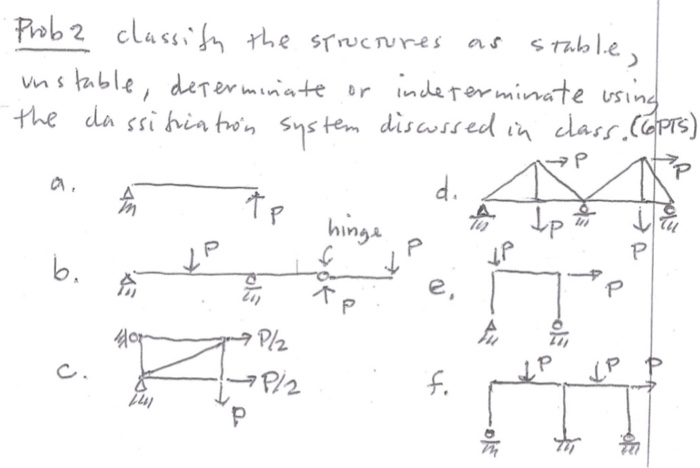 Prob 2 classify the structures as stable,
unstable, determinate or indeterminate using
the classification system discussed in class. (6PTS)
a.
P
b.
P
hinge
P
P
c.
P/2
P/2
P
d.
P
P
P
P
e.
P
P
f.
P
P
P